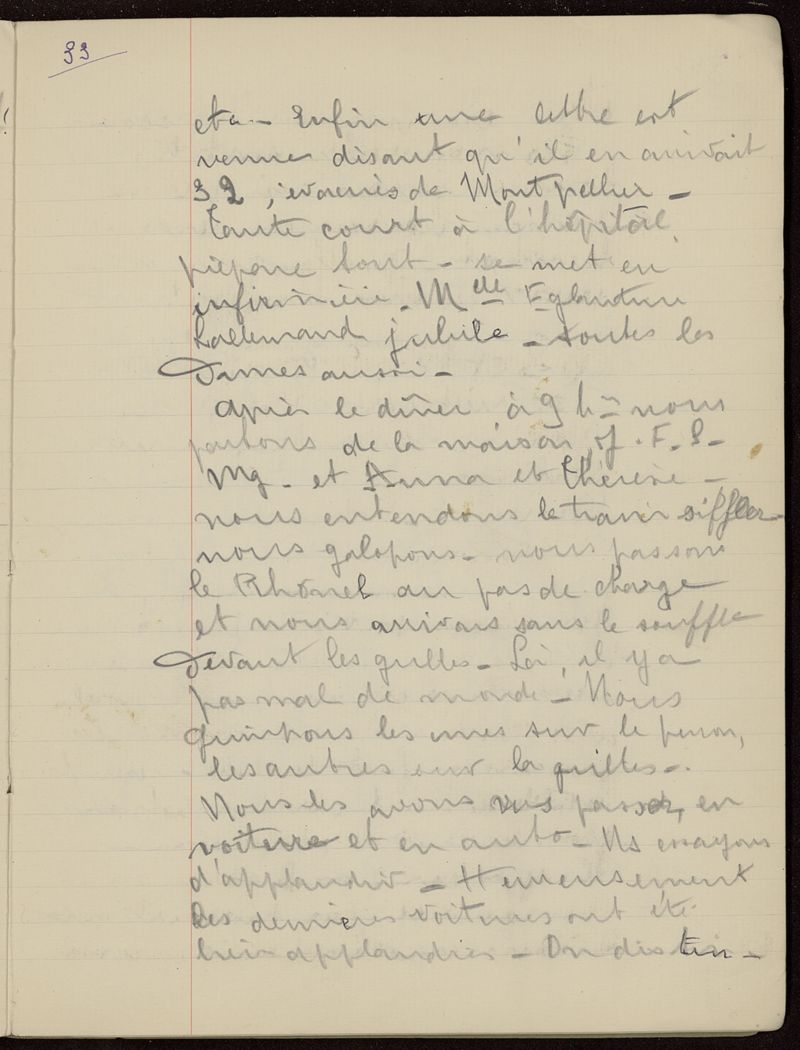 33
etc - Enfin une lettre est
venue disant qu'il en arrivait
32, évacués de Montpellier -
Tante court à l'hôpital,
prépare tout - se met en
infirmière - Mlle Eglantine
Lallemand jubile - toutes les
Dames aussi -
Après le dîner à 9 h - nous
partons de la maison, J. F. S -
Mg - et Anna et Thérèse -
nous entendons le train siffler -
nous galopons - nous passons
le Rhônel au pas de charge
et nous arrivons sans le souffle
Devant les grilles - Là, il y a
pas mal de monde - Nous
grimpons les unes sur le perron,
les autres sur la grilles -
Nous les avons vus passer, en
voiture et en auto - Ns essayons
d'applaudir - Heureusement
les dernières voitures ont été
bien applaudies - On distin-